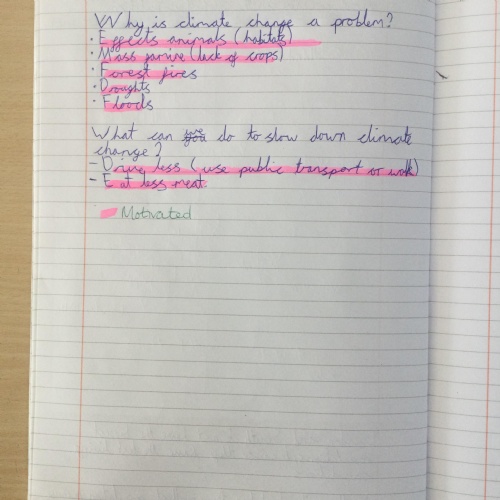 Why is climate change a problem?
· Effects animals (habitats)
· Mass famine (lack of crops)
· Forest fires
· Droughts
· Floods
What can we do to slow down climate
change?
- Drive less (use public transport or walk)
- Eat less meat
Motivated